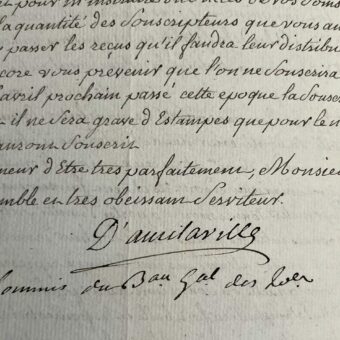 pour m'instruire
la quantité des Souscripteurs que vous au
passer les reçus qu'il faudra leur distribu
core vous prévenir que l'on ne Souscrira
avril prochain passé cette epoque la Souscr
il ne Sera gravé d'Estampes que pour le n
auront Souscrit
neur d'Etre tres parfaitement, Monsieu
mble en tres obeissant Serviteur.
D'amilaville
Commis du Bau Gal des